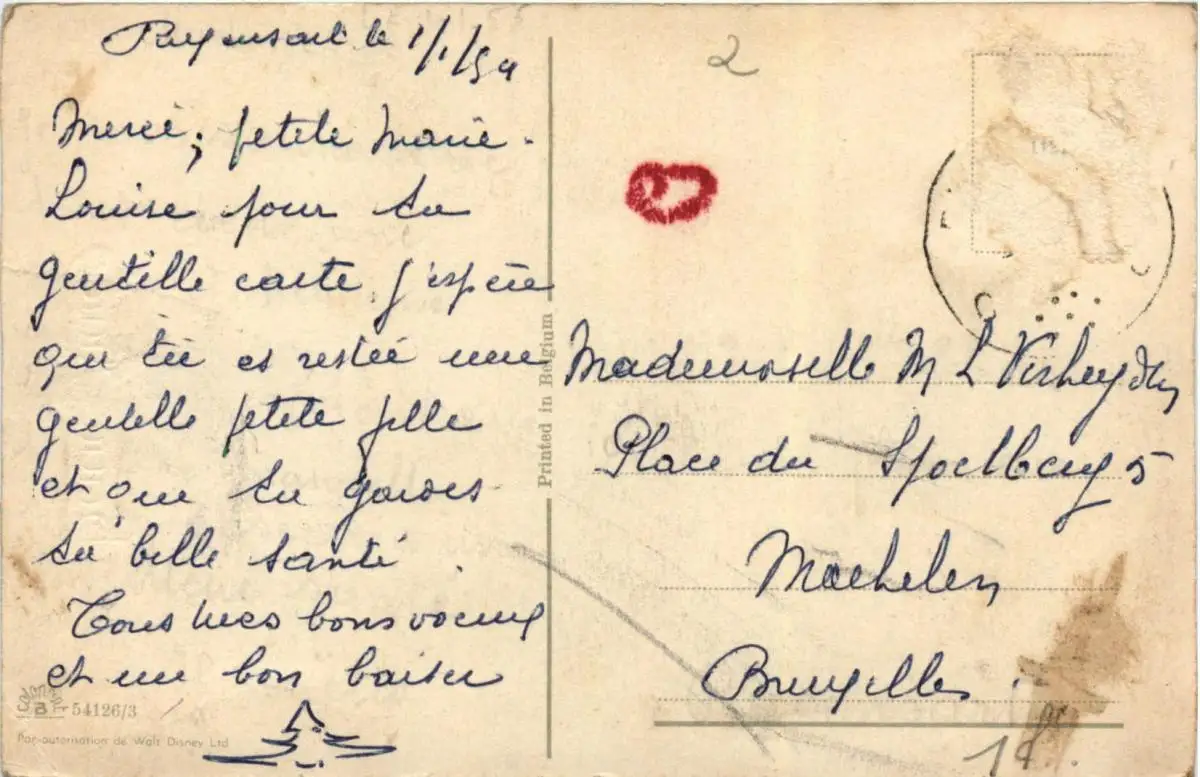 le 1/1/54
Merci, petite Marie-
Louise pour ta
gentille carte j'espère
que tu es restée une
gentille petite fille
et que tu gardes
ta belle santé.
Tous mes bons voeux
et un bon baiser
54126/3
Par autorisation de Walt Disney Ltd
Printed in Belgium
2
Mademoiselle M L Verheyden
Place du Spoelberg 5
Machelen
Bruxelles.
1 fr.